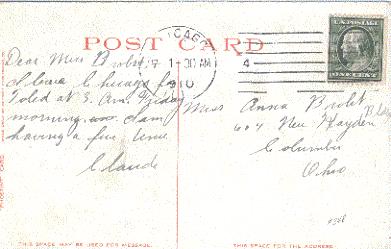 POST CARD
CHICAGO
1-30 AM
1910
4
U.S. POSTAGE
ONE CENT
Dear Miss Brobst,
I leave Chicago for
Toledo at 3 A.M. Friday
morning am
having a fine time
Claude
Miss Anna Brobst
604 New Hayden Bldg
Columbus
Ohio
POSTCARD
THIS SPACE MAY BE USED FOR MESSAGE.
THIS SPACE FOR THE ADDRESS.